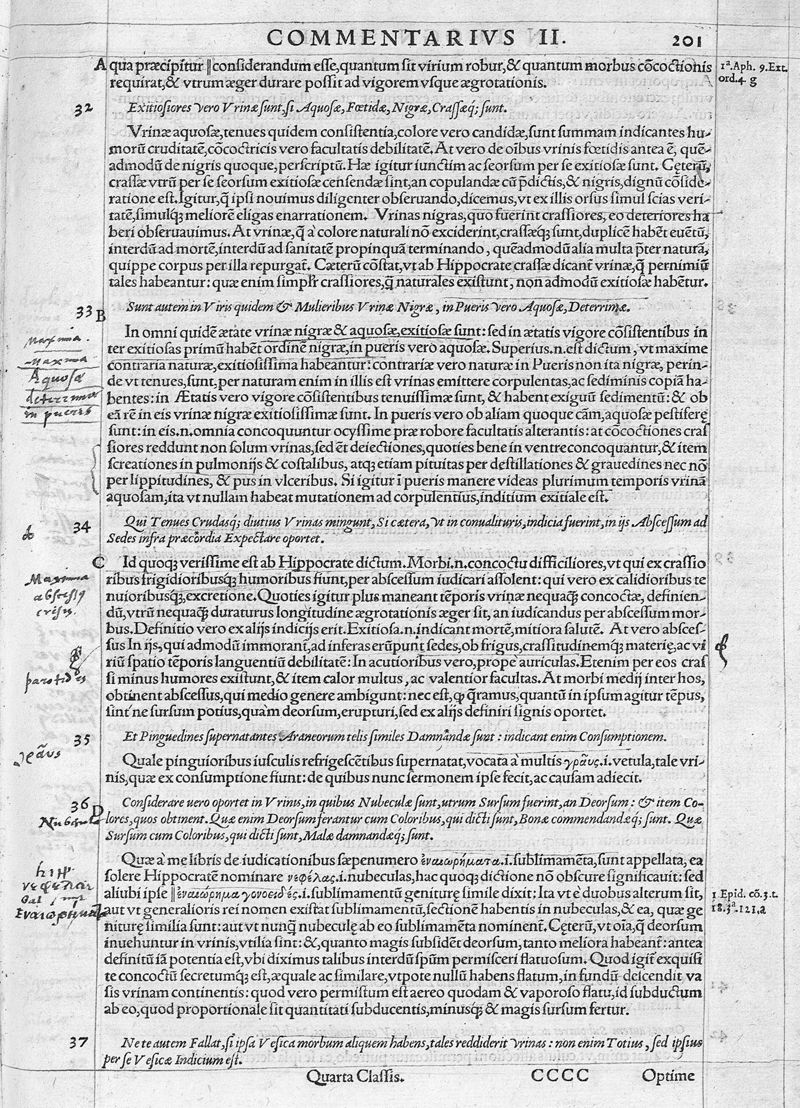 COMMENTARIVS II. 201
A qua præcipitur ‖considerandum esse, quantum sit virium robur, & quantum morbus cōcoctionis
requirat, & vtrum æger durare possit ad vigorem vsque ægrotationis.
1ª. Aph. 9. Ext.
ord. 4 g
32 Exitiosiores vero Vrinæ sunt, si Aquosæ, Fœtidæ, Nigræ, Crassæq; sunt.
Vrinæ aquosæ, tenues quidem consistentia, colore vero candidæ, sunt summam indicantes hu-
morū cruditatē, cōcoctricis vero facultatis debilitatē. At vero de oībus vrinis fœtidis antea ē, quē-
admodū de nigris quoque, perscriptū. Hæ igitur iunctim ac seorsum per se exitiosæ sunt. Cęterū,
crassæ vtrū per se seorsum exitiosæ censendæ sint, an copulandæ cū p̄dictis, & nigris, dignū cōside-
ratione est. Igitur, q̄ ipsi nouimus diligenter obseruando, dicemus, vt ex illis orsus simul scias veri-
tatē, simulq; meliorē eligas enarrationem. Vrinas nigras, quo fuerint crassiores, eo deteriores ha
beri obseruauimus. At vrinæ, q̄ à colore naturali nō exciderint, crassæq; sunt, duplicē habēt euētū,
interdū ad mortē, interdū ad sanitatē propinquā terminando, quēadmodū alia multa p̄ter naturā,
quippe corpus per illa repurgat̄. Cæterū cōstat, vt ab Hippocrate crassæ dicant̄ vrinæ, q̄ pernimiū
tales habeantur: quæ enim simplr̄ crassiores, q̄ naturales existunt, non admodū exitiosæ habētur.
33 B Sunt autem in Viris quidem & Mulieribus Vrinæ Nigræ, in Pueris vero Aquosæ, Deterrimæ.
In omni quidē ætate vrinæ nigræ & aquosæ, exitiosæ sunt: sed in ætatis vigore cōsistentibus in
ter exitiosas primū habēt ordinē nigræ, in pueris vero aquosæ. Superius. n. est dictum, vt maxime
contraria naturæ, exitiosissima habeantur: contrariæ vero naturæ in Pueris non ita nigræ, perin-
de vt tenues, sunt, per naturam enim in illis est vrinas emittere corpulentas, ac sediminis copiā ha-
bentes: in Ætatis vero vigore cōsistentibus tenuissimæ sunt, & habent exiguū sedimentū: & ob
eā rē in eis vrinæ nigræ exitiosissimæ sunt. In pueris vero ob aliam quoque cām, aquosæ pestiferę
sunt: in eis. n. omnia concoquuntur ocyssime præ robore facultatis alterantis: at cōcoctiones cras
siores reddunt non solum vrinas, sed ēt deiectiones, quoties bene in ventre concoquantur, & item
screationes in pulmonijs & costalibus, atq; etiam pituitas per destillationes & grauedines nec nō
per lippitudines, & pus in vlceribus. Si igitur ī pueris manere videas plurimum temporis vrinā
aquosam, ita vt nullam habeat mutationem ad corpulentius, inditium exitiale est.
Maxima
Aquosæ
deterrimæ
in pueris
34 Qui Tenues Crudasq; diutius Vrinas mingunt, Si cætera, vt in conualituris, indicia fuerint, in ijs Abscessum ad
Sedes infra præcordia Expectare oportet.
C Id quoq; verissime est ab Hippocrate dictum. Morbi. n. concoctu difficiliores, vt qui ex crassio
ribus frigidioribusq; humoribus fiunt, per abscessum iudicari assolent: qui vero ex calidioribus te
nuioribusq;, excretione. Quoties igitur plus maneant tēporis vrinæ nequaq̄ concoctæ, definien-
dū, vtrū nequaq̄ duraturus longitudine ægrotationis æger sit, an iudicandus per abscessum mor-
bus. Definitio vero ex alijs indicijs erit. Exitiosa. n. indicant mortē, mitiora salutē. At vero absces-
sus In ijs, qui admodū immorant̄, ad inferas erūpunt sedes, ob frigus, crassitudinemq; materię, ac vi
riū spatio tēporis languentiū debilitatē: In acutioribus vero, prope auriculas. Etenim per eos cras
si minus humores existunt, & item calor multus, ac valentior facultas. At morbi medij inter hos,
obtinent abscessus, qui medio genere ambigunt: nec est, q̄ q̄ramus, quantū in ipsum agitur tēpus,
sint'ne sursum potius, quàm deorsum, erupturi, sed ex alijs definiri signis oportet.
parotides
35 Et Pinguedines supernatantes Araneorum telis similes Damnandæ sunt: indicant enim Consumptionem.
Quale pinguioribus iusculis refrigescētibus supernatat, vocata à multis γραῦς. i. vetula, tale vri-
nis, quæ ex consumptione fiunt: de quibus nunc sermonem ipse fecit, ac causam adiecit.
γραῦς
36 D Considerare uero oportet in Vrinis, in quibus Nubeculæ sunt, utrum Sursum fuerint, an Deorsum: & item Co-
lores, quos obtinent. Quæ enim Deorsum ferantur cum Coloribus, qui dicti sunt, Bonæ commendandæq; sunt. Quæ
Sursum cum Coloribus, qui dicti sunt, Malæ damnandæq; sunt.
Quæ à me libris de iudicationibus sæpenumero ἐναιωρήματα. i. sublimamēta, sunt appellata, ea
solere Hippocratem nominare νεφέλας. i. nubeculas, hac quoq; dictione nō obscure significauit: sed
aliubi ipse ‖ἐναιώρημα γονοειδὲς. i. sublimamentū geniturę simile dixit: Ita vt è duobus alterum sit,
aut vt generalioris rei nomen existat sublimamentū, sectionē habentis in nubeculas, & ea, quæ ge
niturę similia sunt: aut vt nunq̄ nubeculę ab eo sublimamēta nominent̄. Cęterū, vt oīa, q̄ deorsum
inuehuntur in vrinis, vtilia sint: &, quanto magis subsidēt deorsum, tanto meliora habeant̄: antea
definitū īā potentia est, vbi diximus talibus interdū spūm permisceri flatuosum. Quod igit̄ exquisi
te concoctū secretumq; est, æquale ac similare, vtpote nullū habens flatum, in fundū descendit va
sis vrinam continentis: quod vero permistum est aereo quodam & vaporoso flatu, id subductum
ab eo, quod proportionale sit quantitati subducentis, minusq; & magis sursum fertur.
1 Epid. cō. 3. t.
18. 3ª. 121, a
37 Ne te autem Fallat, si ipsa Vesica morbum aliquem habens, tales reddiderit Vrinas: non enim Totius, sed ipsius
per se Vesicæ Indicium est.
Quarta Classis. CCCC Optime